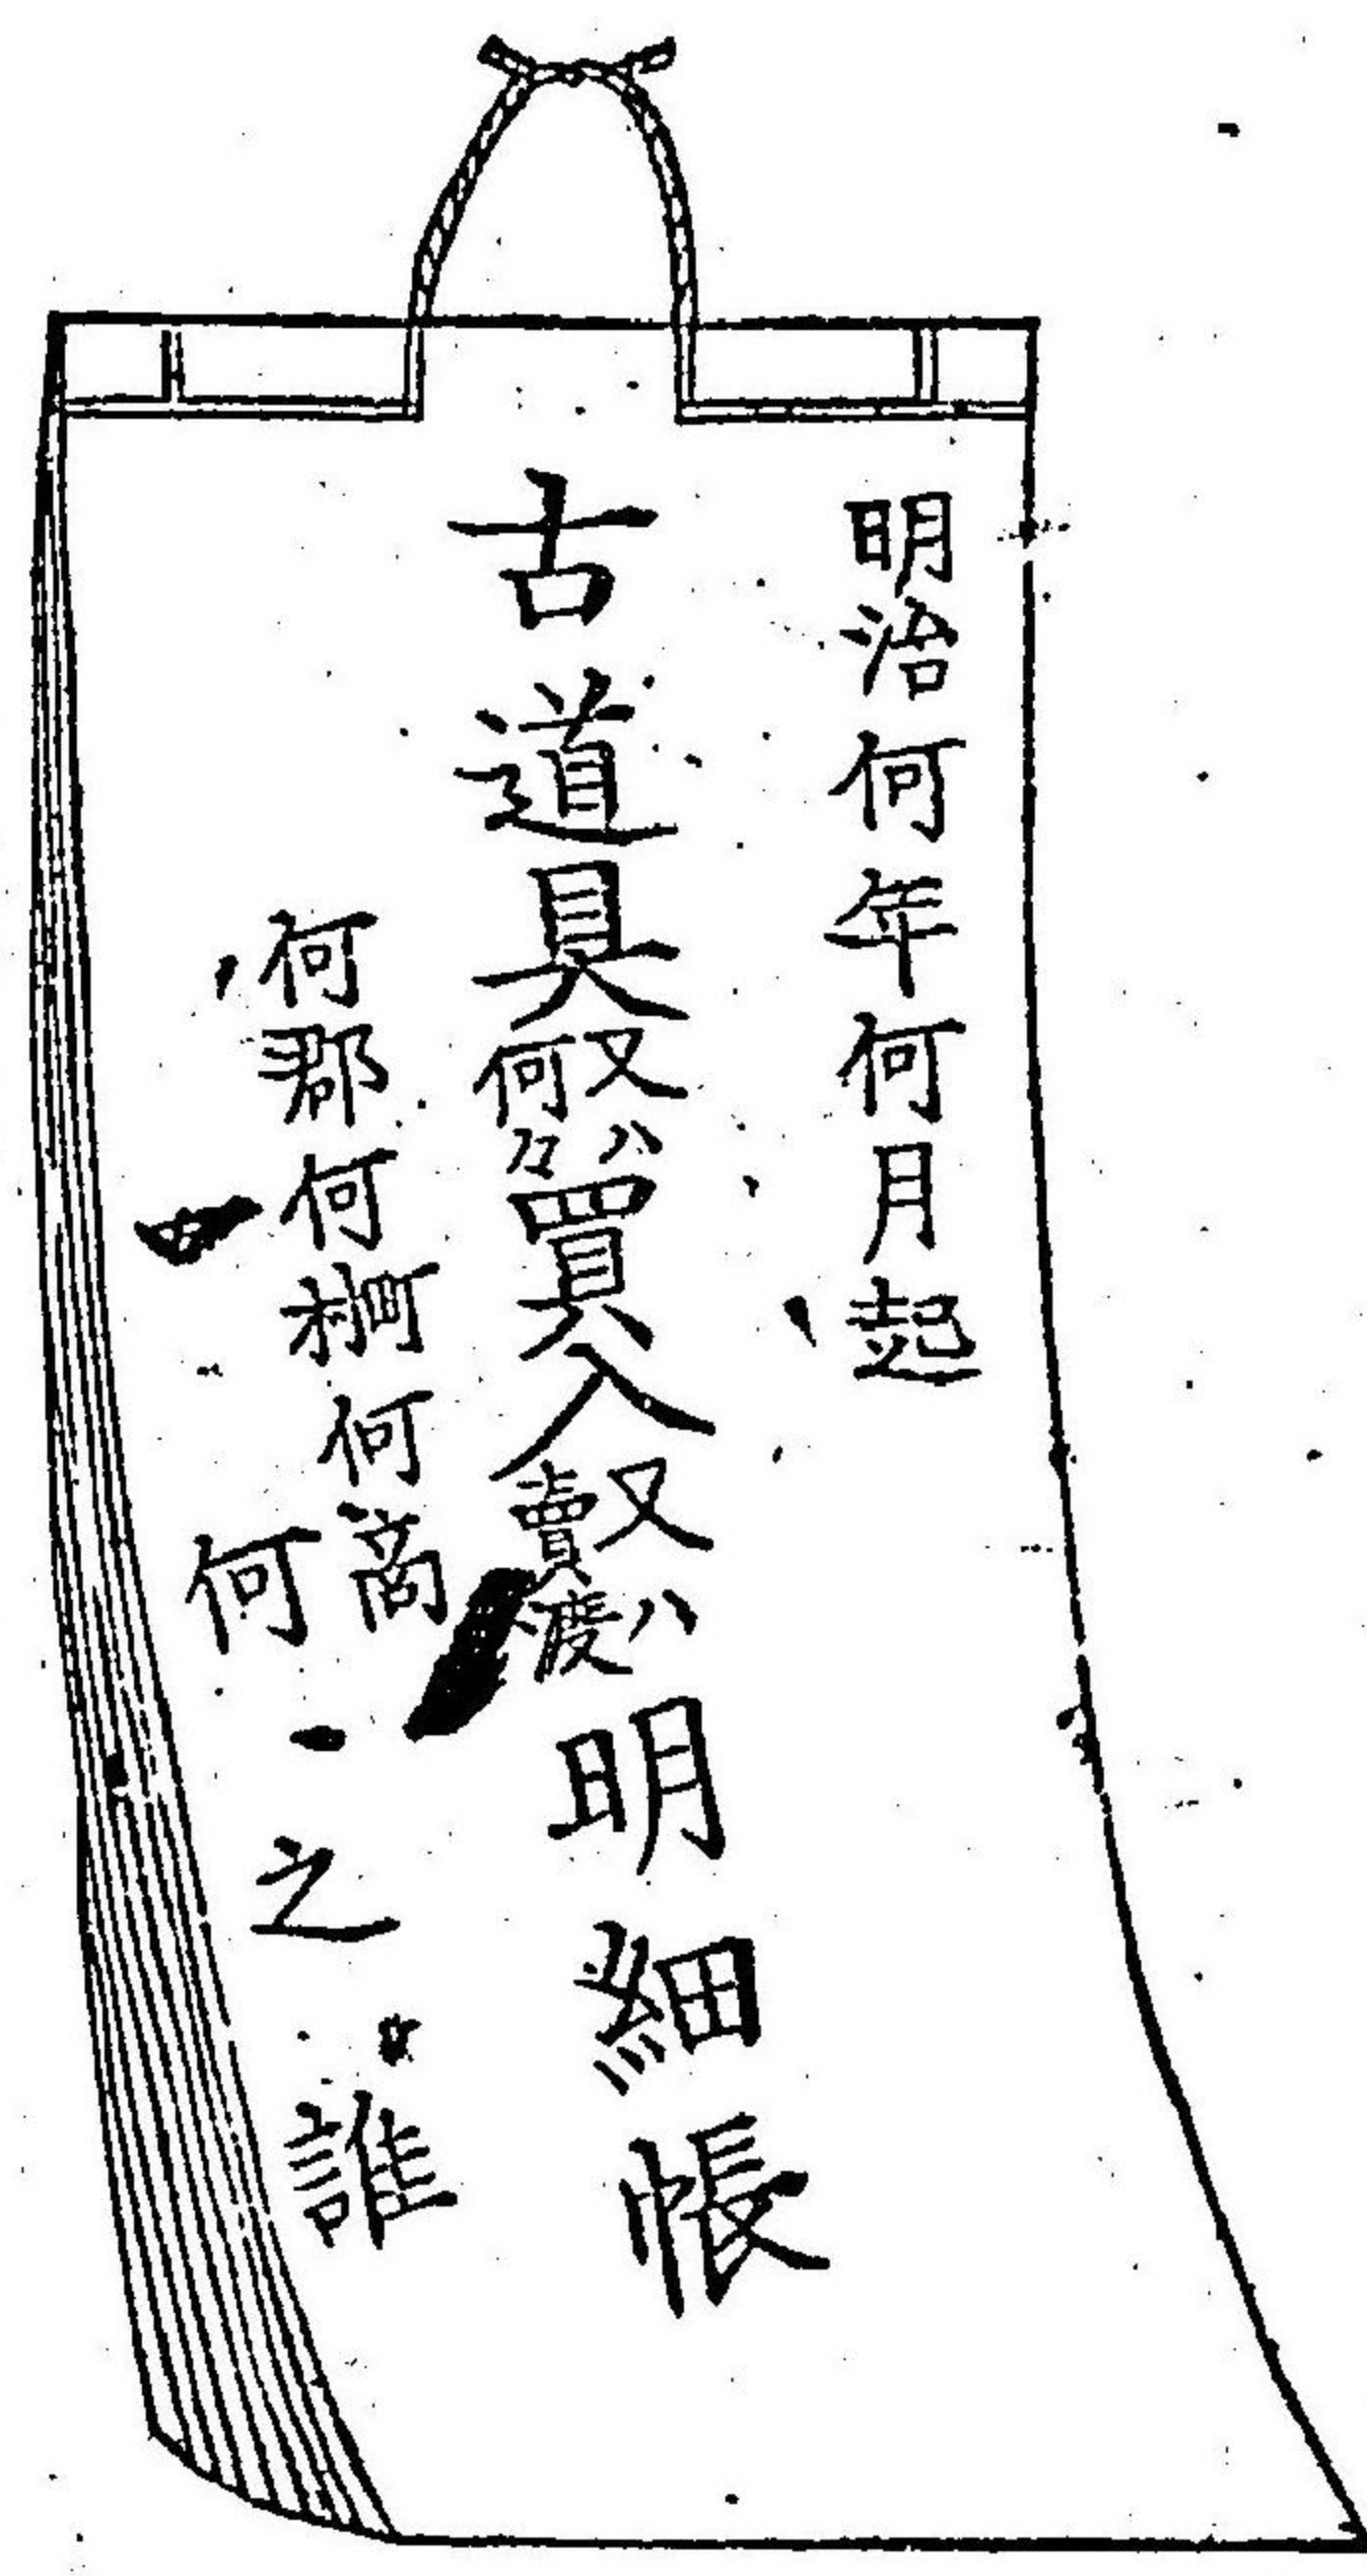 明治何年何月起
古道具又ハ何々買入又ハ賣渡明細帳
何郡何町村何商
何之誰